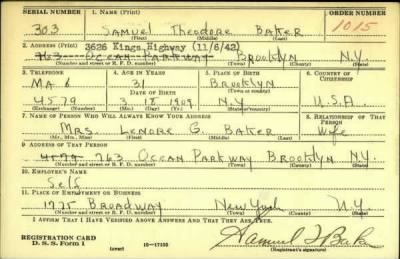 SERIAL NUMBER 1. NAME (Print) ORDER NUMBER
303 Samuel Theodore Baker 1015
(First) (Middle) (Last)
2. ADDRESS (Print) 3626 Kings Highway (11/6/42)
763 Ocean Parkway Brooklyn N.Y.
(Number and street or R. F. D. number) (Town) (County) (State)
3. TELEPHONE 4. AGE IN YEARS 5. PLACE OF BIRTH 6. COUNTRY OF CITIZENSHIP
MA 6 31 Brooklyn
DATE OF BIRTH (Town or county)
4579 3 18 1909 N.Y U.S.A.
(Exchange) (Number) (Mo.) (Day) (Yr.) (State or country)
7. NAME OF PERSON WHO WILL ALWAYS KNOW YOUR ADDRESS 8. RELATIONSHIP OF THAT PERSON
Mrs. Lenore G. Baker Wife
(Mr., Mrs., Miss) (First) (Middle) (Last)
9. ADDRESS OF THAT PERSON
4579 763 Ocean Parkway Brooklyn N.Y.
(Number and street or R. F. D. number) (Town) (County) (State)
10. EMPLOYER'S NAME
Self
11. PLACE OF EMPLOYMENT OR BUSINESS
1775 Broadway New York N.Y.
(Number and street or R. F. D. number) (Town) (County) (State)
I AFFIRM THAT I HAVE VERIFIED ABOVE ANSWERS AND THAT THEY ARE TRUE.
REGISTRATION CARD
D. S. S. Form 1 (over) 16—17105 Samuel T Baker
(Registrant's signature)